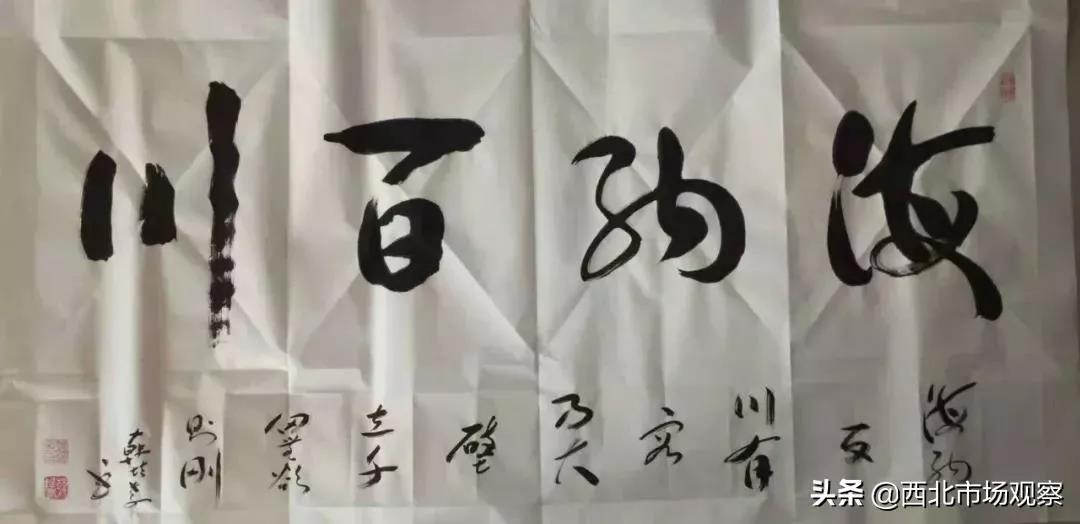 海纳百川
海纳
百
川有
容
乃大
壁
立千
仞无欲
则刚
书
头条 @西北市场观察